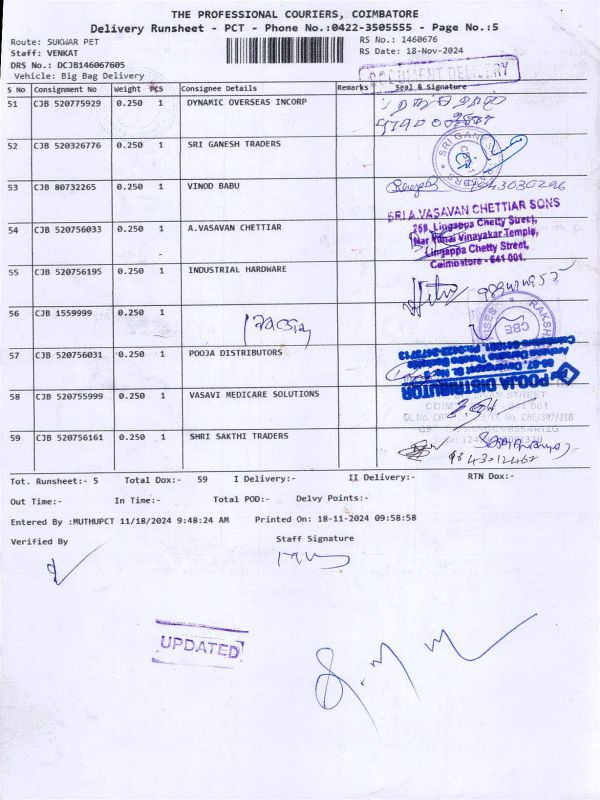 THE PROFESSIONAL COURIERS, COIMBATORE
Delivery Runsheet - PCT - Phone No.:0422-3505555 - Page No.:5
Route: SUKWAR PET
RS No.: 1460676
Staff: VENKAT
RS Date: 18-Nov-2024
DRS No.: DCJB146067605
Vehicle: Big Bag Delivery
DOCUMENT DELIVERY
S No Consignment No Weight PCS Consignee Details Remarks Seal & Signature
51 CJB 520775929 0.250 1 DYNAMIC OVERSEAS INCORP
52 CJB 520326776 0.250 1 SRI GANESH TRADERS
53 CJB 80732265 0.250 1 VINOD BABU
SRI.A.VASAVAN CHETTIAR SONS
258, Lingappa Chetty Street,
54 CJB 520756033 0.250 1 A.VASAVAN CHETTIAR
Lingappa Chetty Street,
Coimbatore - 641 001.
55 CJB 520756195 0.250 1 INDUSTRIAL HARDWARE
56 CJB 1559999 0.250 1
CBE
57 CJB 520756031 0.250 1 POOJA DISTRIBUTORS
POOJA DISTRIBUTOR
58 CJB 520755999 0.250 1 VASAVI MEDICARE SOLUTIONS
59 CJB 520756161 0.250 1 SHRI SAKTHI TRADERS
Tot. Runsheet:- 5 Total Dox:- 59 I Delivery:- II Delivery:- RTN Dox:-
Out Time:- In Time:- Total POD:- Delvy Points:-
Entered By :MUTHUPCT 11/18/2024 9:48:24 AM Printed On: 18-11-2024 09:58:58
Verified By Staff Signature
UPDATED